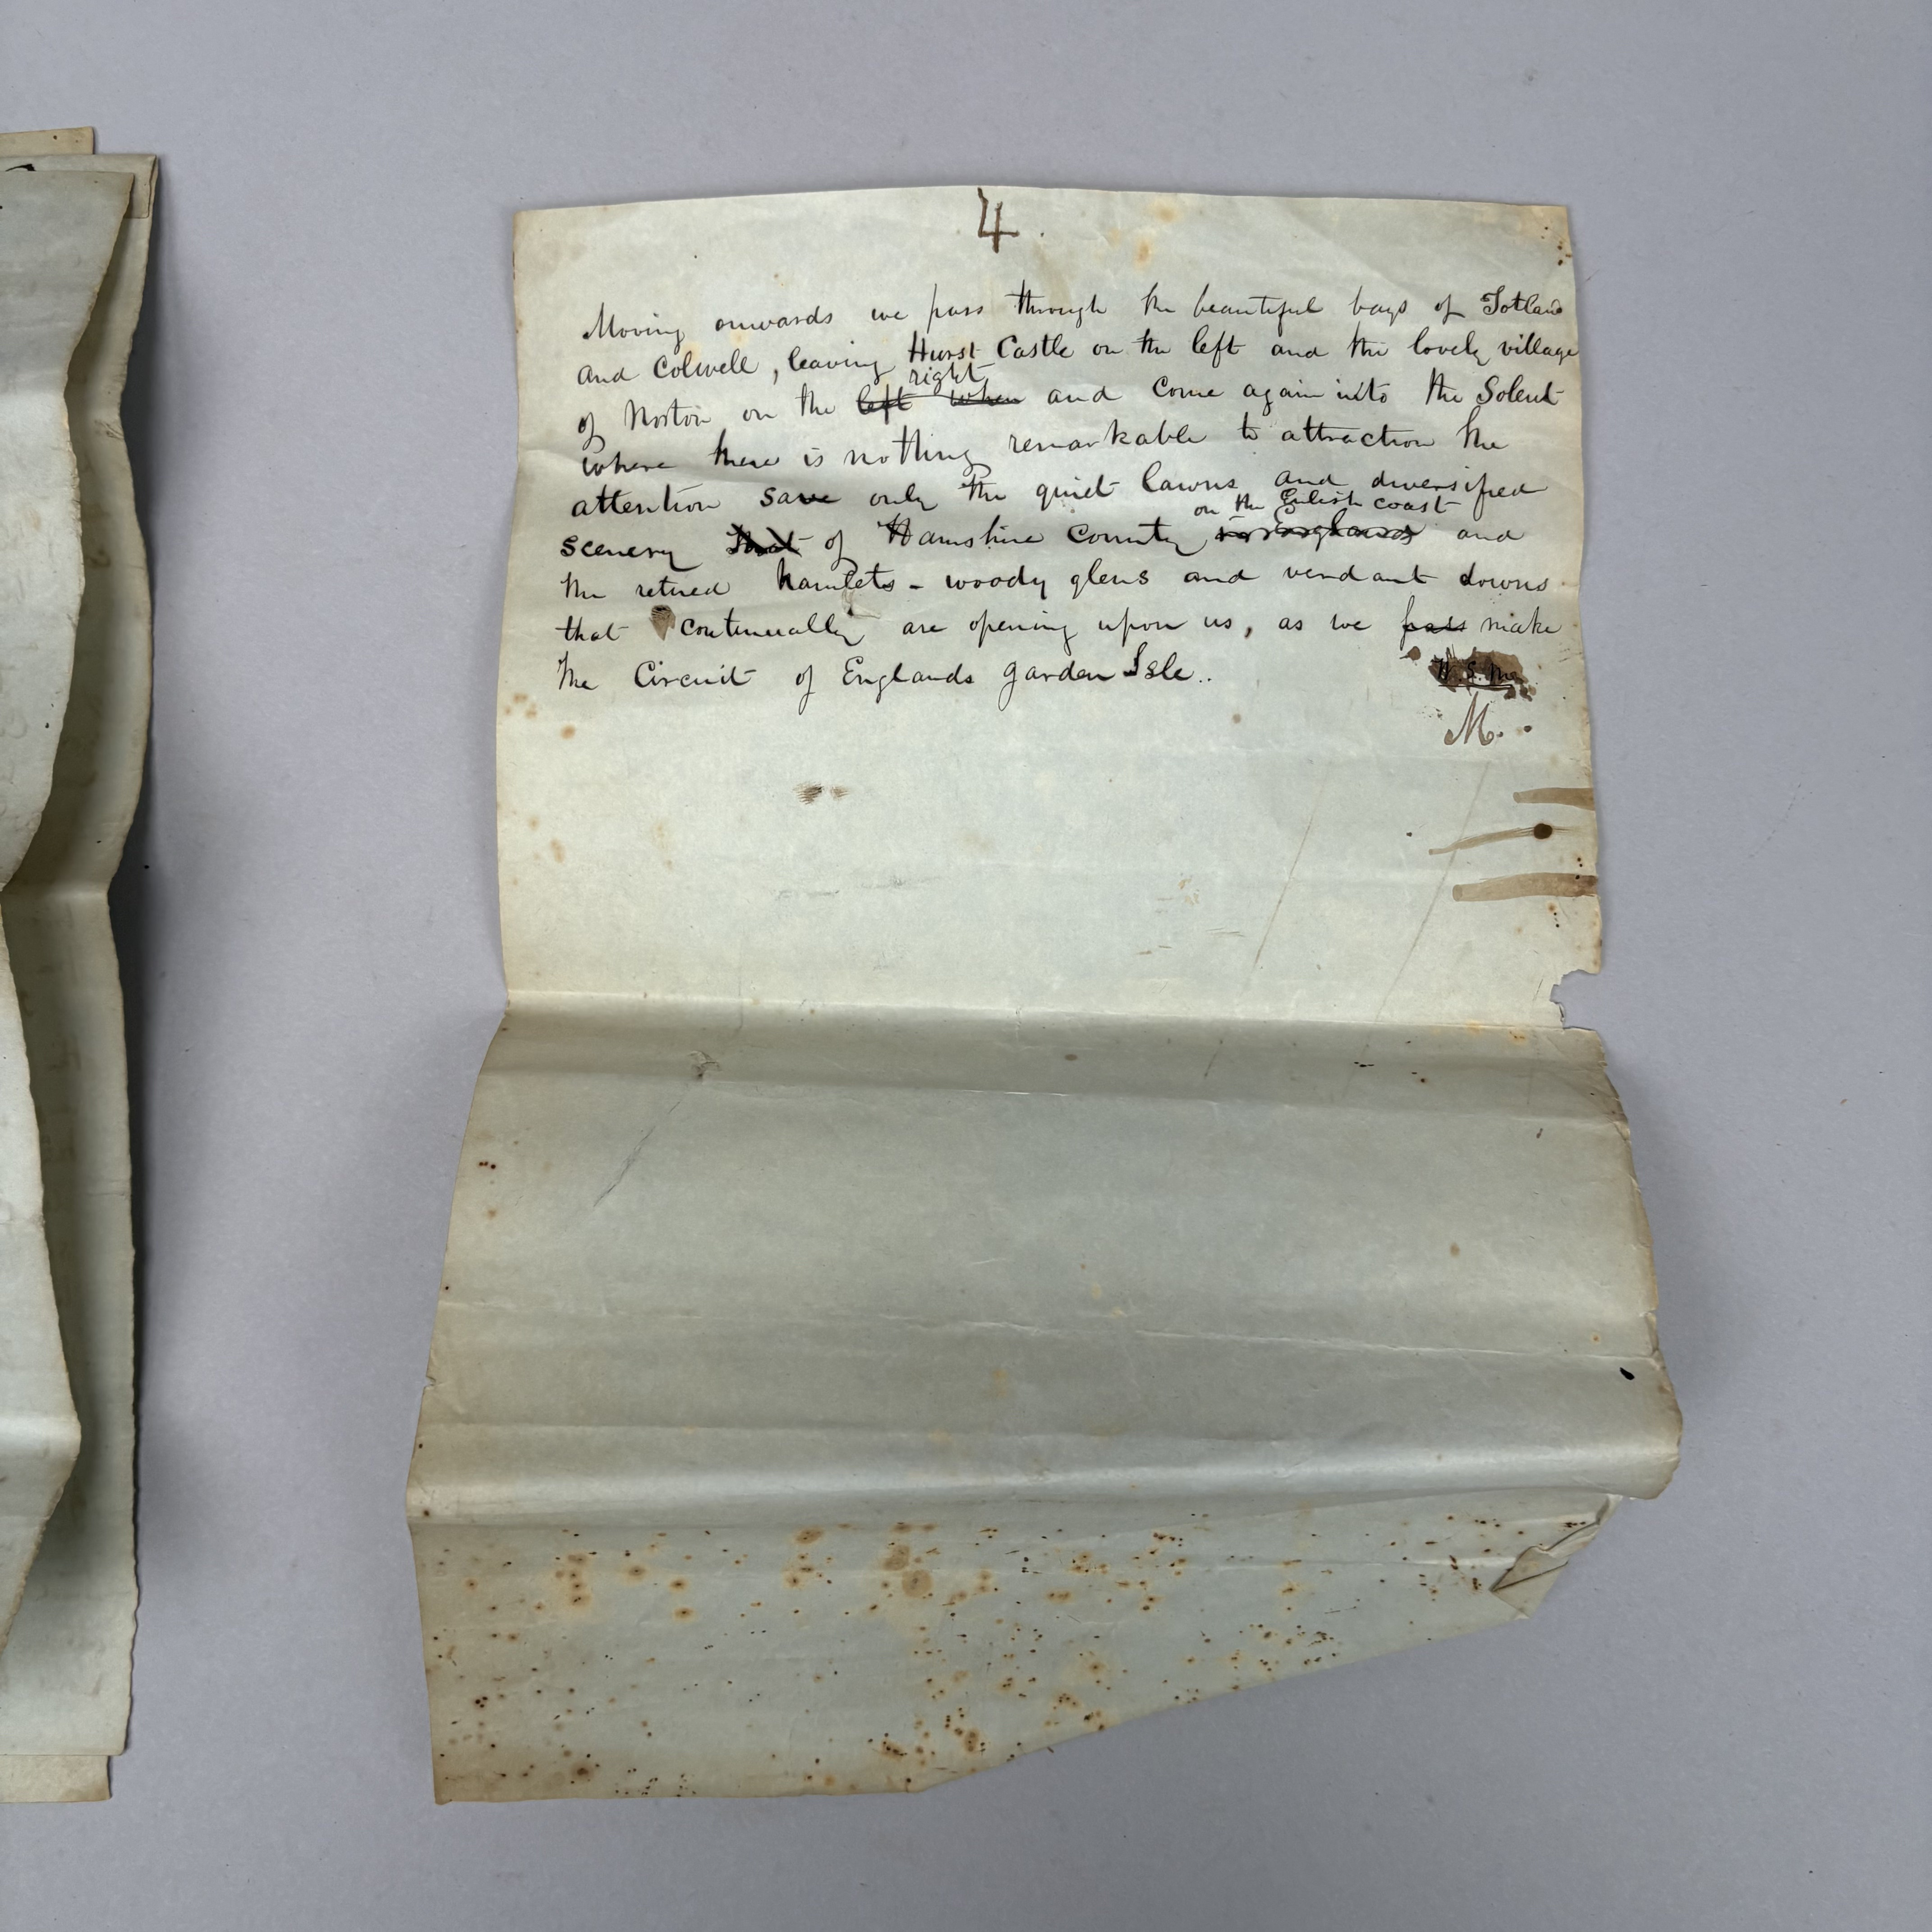 4.
Moving onwards we pass through the beautiful bays of Totland
and Colwell, leaving Hurst Castle on the left and the lovely village
right
of Norton on the left when and come again into the Solent
where there is nothing remarkable to attraction the
attention save only the quiet lawns and diversified
on the Enlish coast
scenery that of Hamshire County and
the retired hamlets - woody glens and verdant downs
that continually are opening upon us, as we pass make
the Circuit of Englands garden Isle..
M.